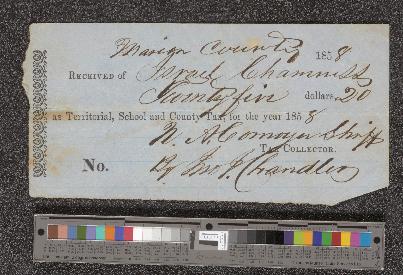 Marion County 1858
Received of Israel Chamness
Twenty five dollars, 20
as Territorial, School and County Tax, for the year 1858
Shff
Tax Collector.
No. By Jno J. Chandler